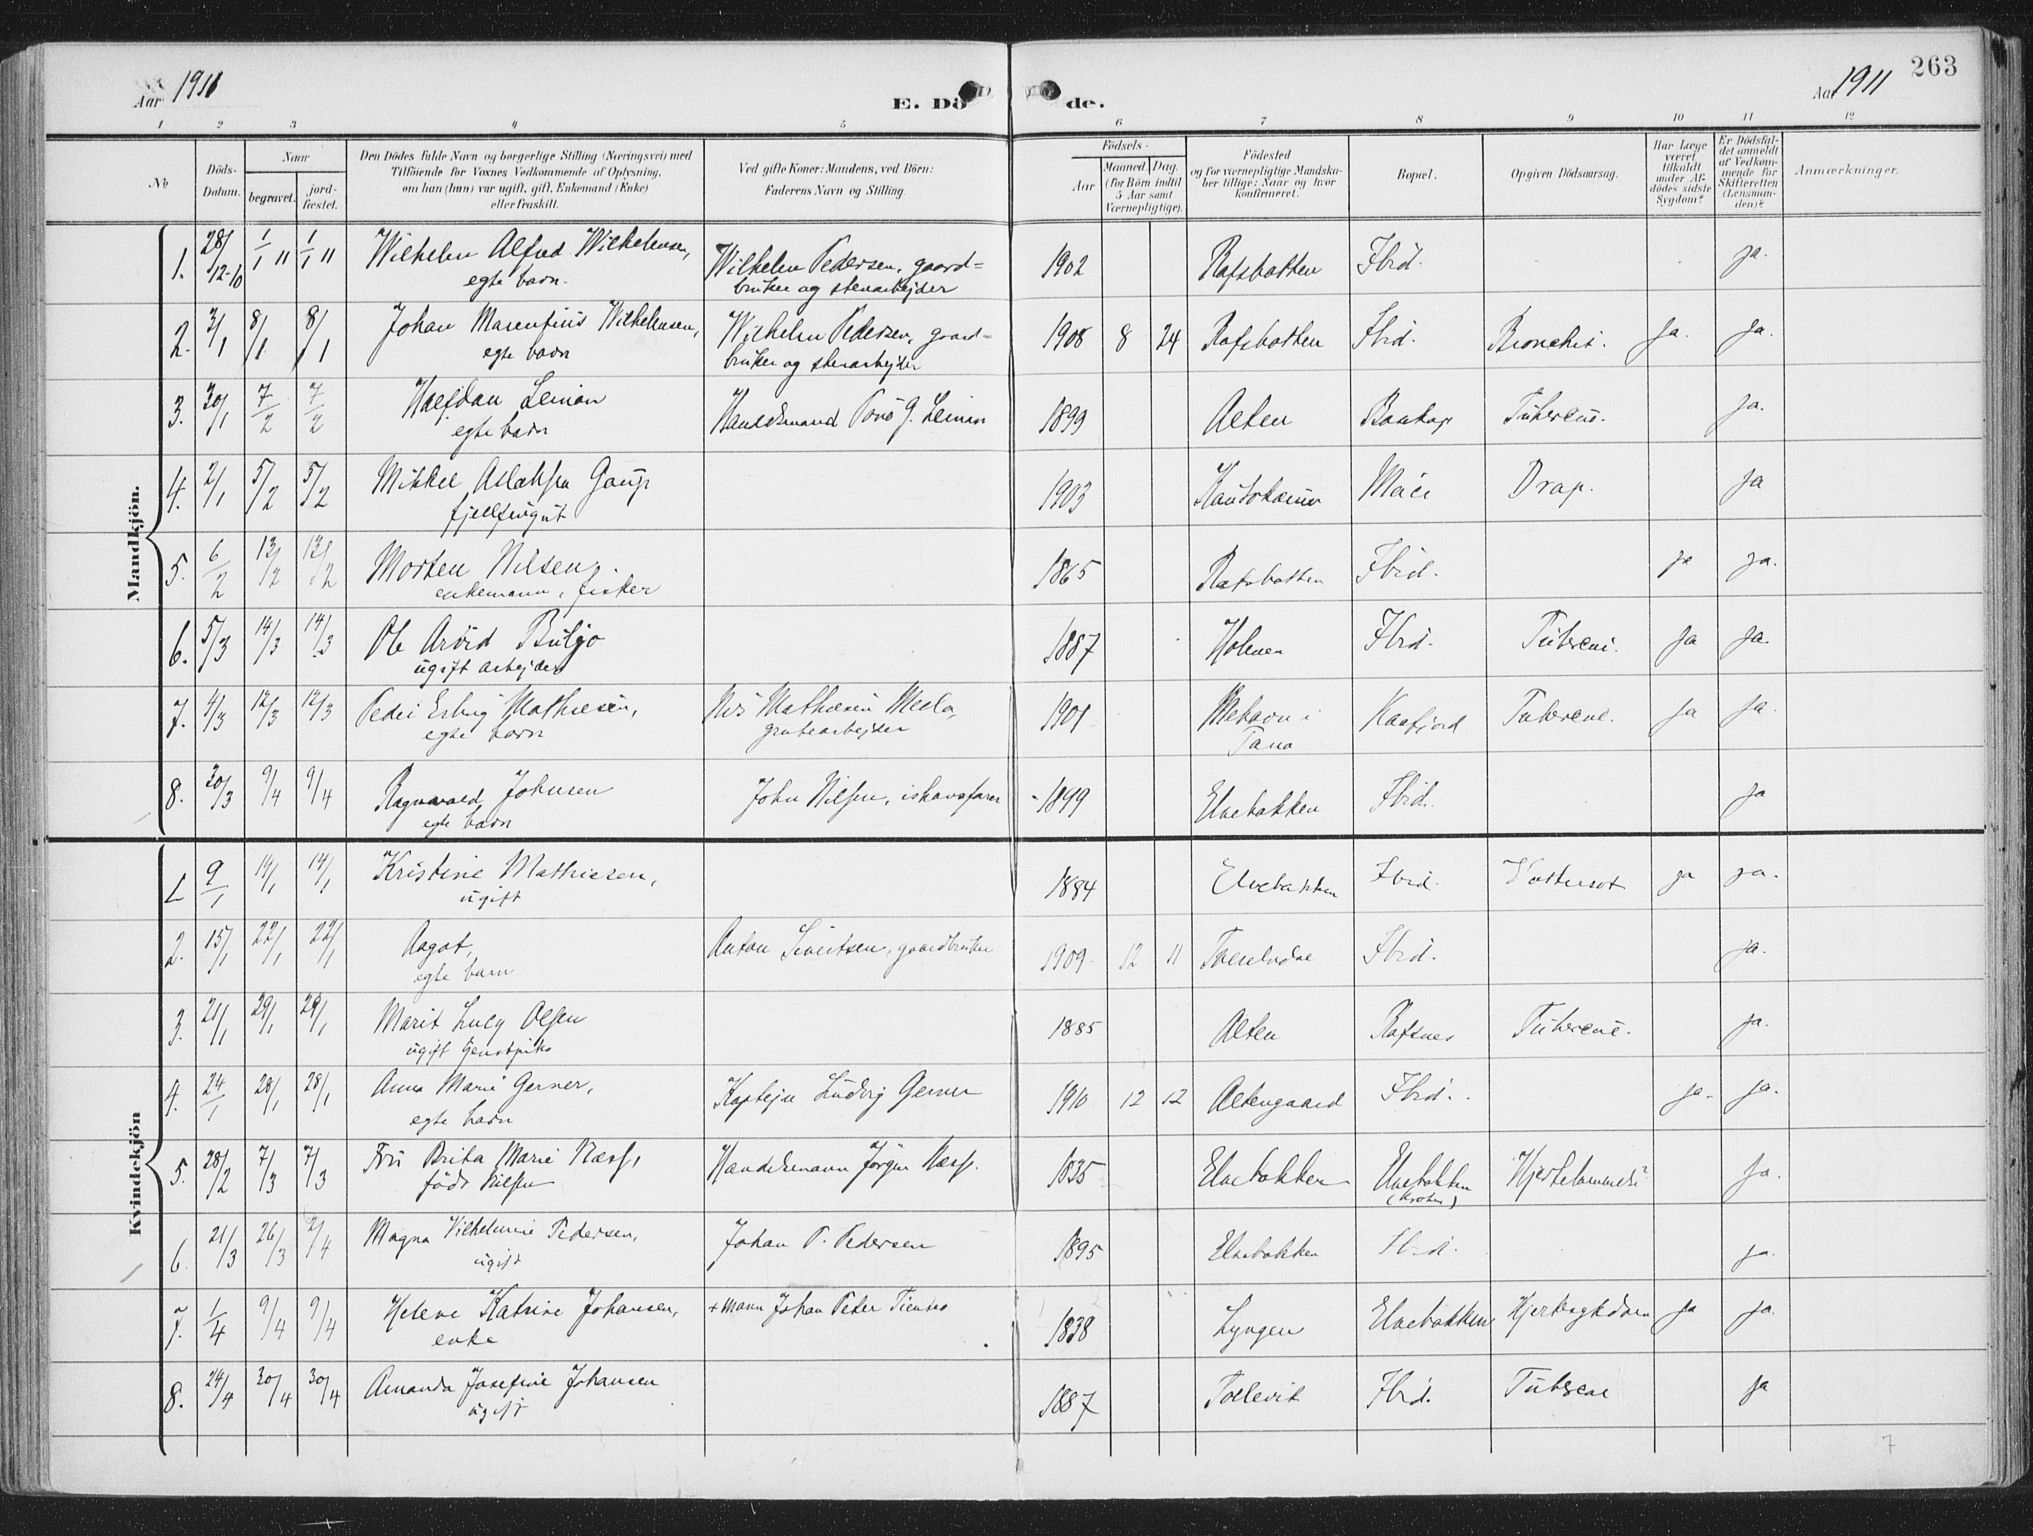 263
Aar 1911
E. Dö de.
Aar 1911
1 2 3 4 5 6 7 8 9 10 11 12
No
Döds-Datum.
Naar
begravet.
jord-fæstet.
Den Dödes fulde Navn og borgerlige Stilling (Næringsvei) med
Tilföiende for Voxnes Vedkommende af Oplysning,
om han (hun) var ugift, gift, Enkemand (Enke)
eller fraskilt.
Ved gifte Koner: Mandens, ved Börn:
Faderens Navn og Stilling.
Födsels-
Aar
Maaned. Dag.
(for Börn indtil
5 Aar samt
Værnepligtige).
Födested
og for værnepligtige Mandska-
ber tillige: Naar og hvor
konfirmeret.
Bopæl.
Opgiven Dödsaarsag.
Har Læge
været
tilkaldt
under Af-
dödes sidste
Sygdom?
Er Dödsfal-
det anmeldt
af Vedkom-
mende for
Skifteretten
(Lensman-
den)?
Anmærkninger.
Mandkjön.
1. 28/12-10 1/1 11 1/1 11 Wilhelm Alfred Wilhelmsen, Wilhelm Pedersen, gaard= 1902 Rafsbotten Ibid. ja.
egte barn. bruker og stenarbejder
2. 3/1 8/1 8/1 Johan Marentius Wilhelmsen, Wilhelm Pedersen, gaard= 1908 8 24 Rafsbotten Ibid. Bronchit. Ja. Ja.
egte barn bruker og stenarbejder
3. 30/1 7/2 7/2 Halfdan Leinan Handelsmand G. Leinan 1899 Alten Bossekop Tuberculos. ja.
egte barn
4. 2/1 5/2 5/2 Mikkel Aslaksen Gaup 1903 Kautokeino Drap. ja
5. 6/2 13/2 13/2 Morten Nilsen, 1865 Rafsbotten Ibid. ja ja.
enkemann, fisker
6. 5/3 14/3 14/3 Ole Arvid Buljo 1887 Holmen Ibid. Ja Ja.
ugift arbejder
7. 4/3 12/3 12/3 Peder Erling Mathiesen, Nils Mathiesen 1901 Mehavn i Kaafjord Ja Ja.
egte barn grubearbejder Tana
8. 30/3 9/4 9/4 Ragnvald Johnsen John Nilsen, ishavsfarer 1899 Elvebakken Ibid. ja
egte barn
Kvindekjön
1. 9/1 14/1 14/1 Kristine Mathiesen, 1884 Elvebakken Ibid. Vattersot ja ja.
ugift
2. 15/1 22/1 22/1 Aagot, Anton Sivertsen, gaardbruker 1909 12 11 Tverelvdal Ibid. ja.
egte barn
3. 21/1 29/1 29/1 Marit Lucy Olsen 1885 Alten Rafsnes ja.
ugift tjenestpike
4. 24/1 28/1 28/1 Anna Marie Gerner, Kaptejn Ludvig Gerner 1910 12 12 Altengaard Ibid. ja. ja.
egte barn
5. 28/2 7/3 7/3 Fru Brita Marie Næss, Handelsmann Jørgen Næss. 1835 Elvebakken Elvebakken Hjertelammelse? Ja.
födt Nilsen
6. 21/3 26/3 2/4 Magna Vilhelmine Pedersen, Johan P. Pedersen 1895 Elvebakken Ibid. ja.
ugift
7. 1/4 9/4 9/4 Helene Katrine Johansen, + mann Johan Peter 1838 Lyngen Elvebakken Hjertesykdom Ja Ja.
enke
8. 24/4 30/4 30/4 Amanda Josefine Johansen 1887 Tallevik Ibid. ja
ugift
7